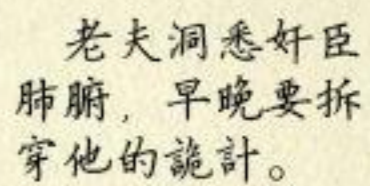 老夫洞悉奸臣
肺腑，早晚要拆
穿他的詭計。